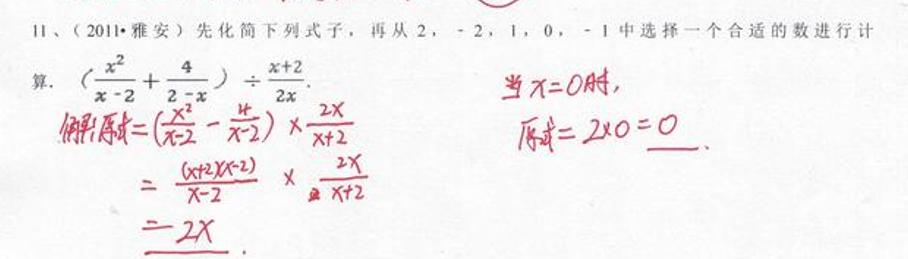 11、（2011•雅安）先化简下列式子，再从 2，-2，1，0，-1 中选择一个合适的数进行计
算．（x²/(x-2) + 4/(2-x)）÷ (x+2)/(2x)．
解:原式=(x²/(x-2) - 4/(x-2)) × 2x/(x+2)
= (x+2)(x-2)/(x-2) × 2x/(x+2)
= 2x .
当x=0时,
原式= 2×0=0 .